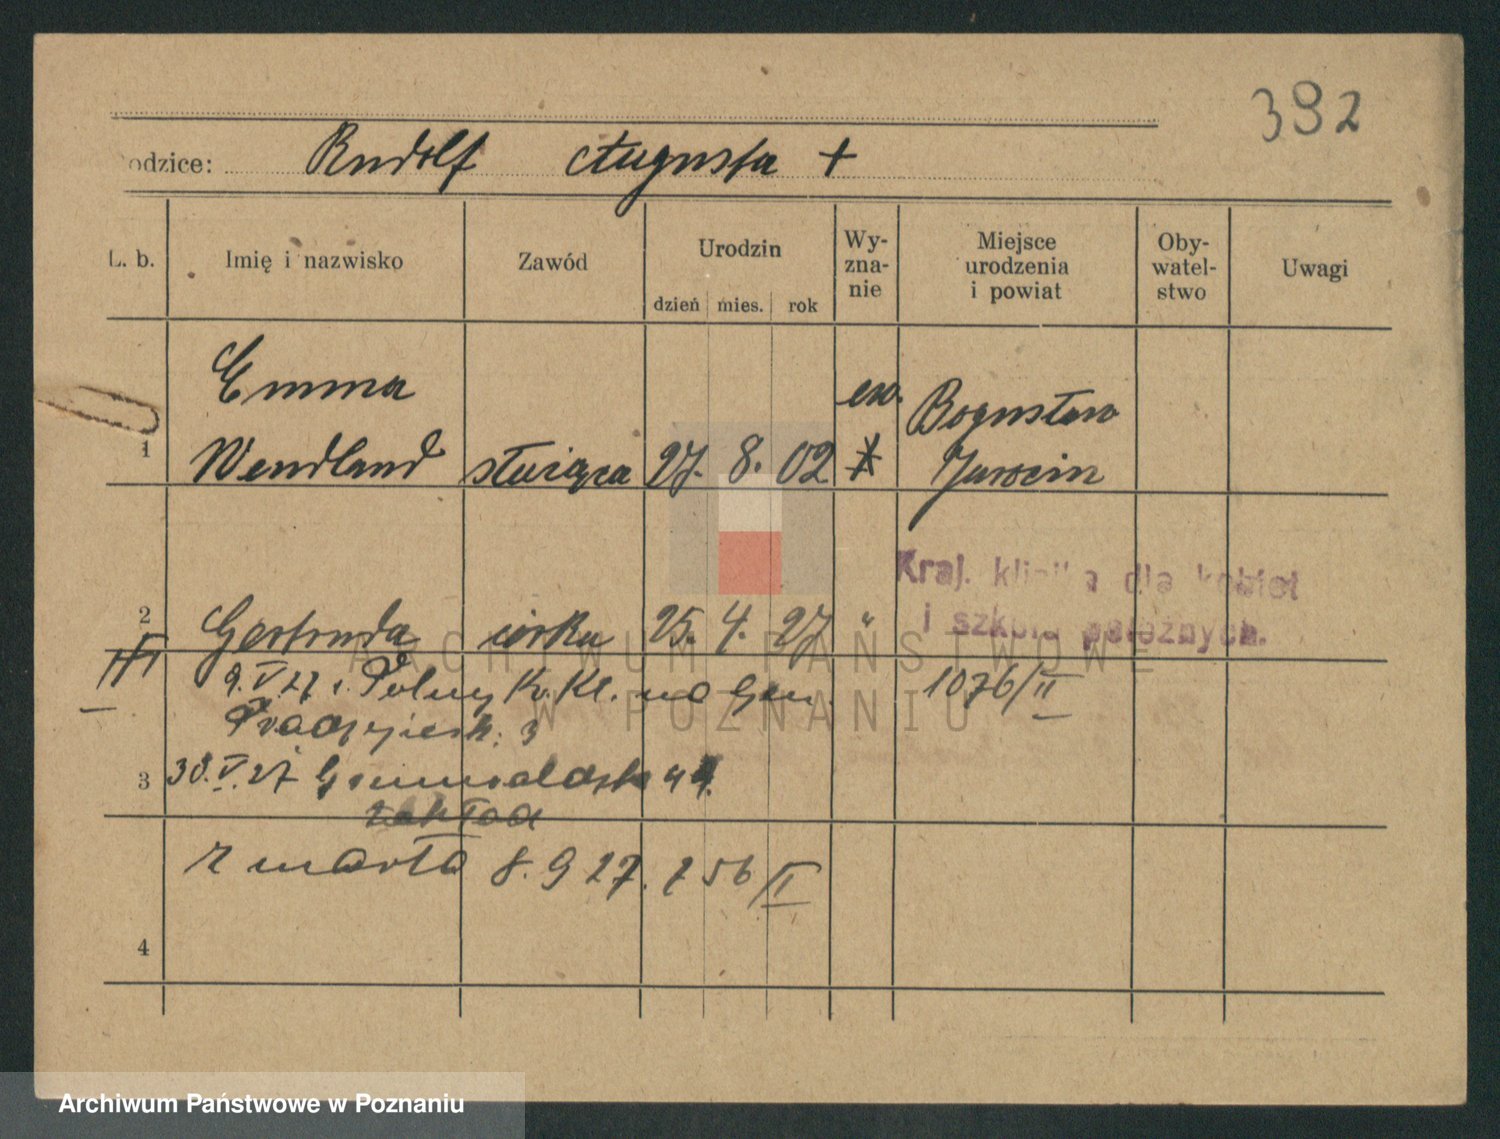 392
Rodzice: Rudolf Augusta +
L. b. Imię i nazwisko Zawód Urodzin dzień mies. rok Wy-zna-nie Miejsce urodzenia i powiat Oby-watel-stwo Uwagi
Emma ew. Bogusław
1 Wendland służąca 27. 8. 02 Jarocin
Kraj. klinika dla kobiet
i szkoła położnych.
2 Gertruda córka 25. 4. 27 "
9.V.27 Polny Kr. Kl. na 1076/II
3
3 30.V.27 Grunwaldzka
zakład
zmarła 8. 9 27. 256/II
4
ARCHIWUM PAŃSTWOWE
W POZNANIU
Archiwum Państwowe w Poznaniu